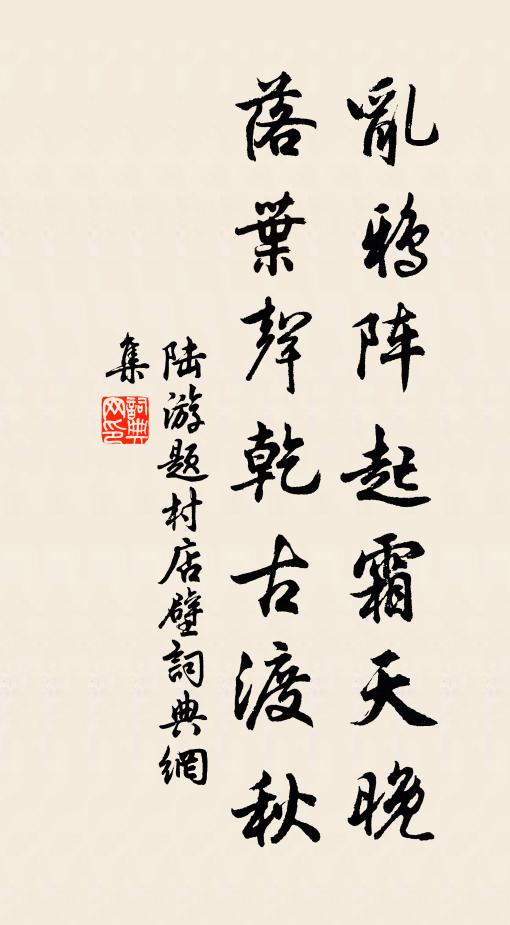 亂鸦阵起霜天晚
落葉聲乾古渡秋
陆游题村店壁詞典網
集
詞典
网印